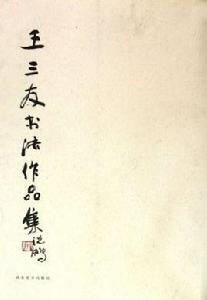 王三友书法作品集
沈鹏